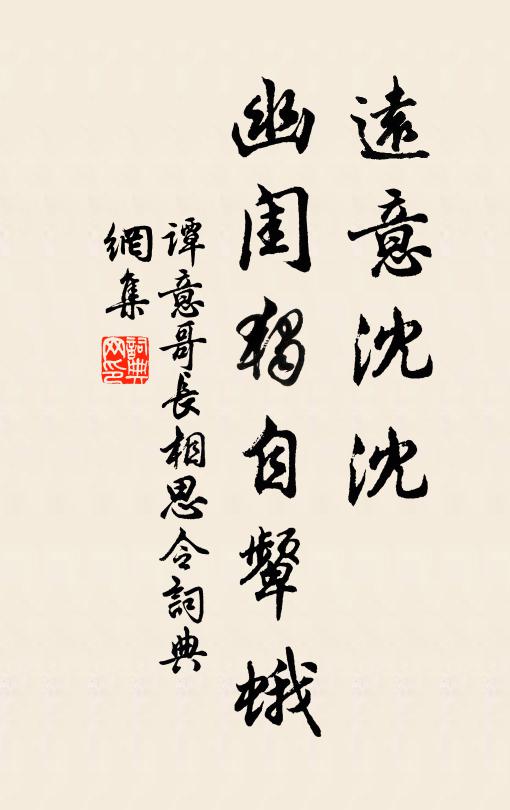 遠意沈沈
幽閨獨自顰蛾
譚意哥長相思令詞典
網集
詞典
网印